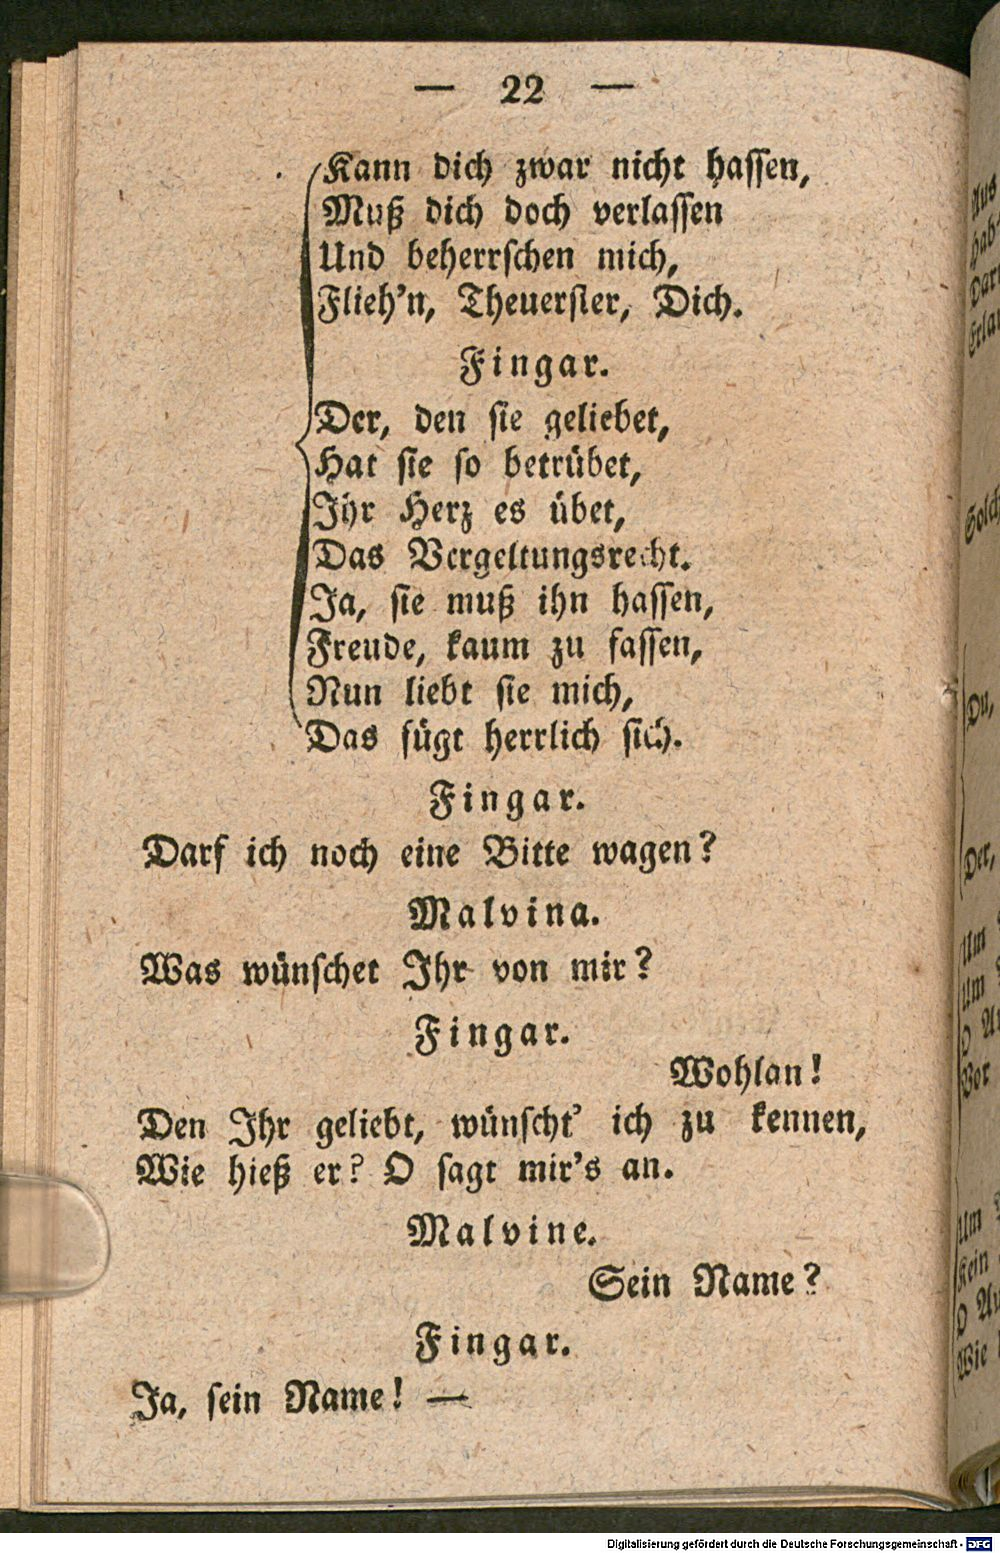 — 22 —
Kann dich zwar nicht hassen,
Muß dich doch verlassen
Und beherrschen mich,
Flieh'n, Theuerster, Dich.
Fingar.
Der, den sie geliebet,
Hat sie so betrübet,
Ihr Herz es übet,
Das Vergeltungsrecht.
Ja, sie muß ihn hassen,
Freude, kaum zu fassen,
Nun liebt sie mich,
Das fügt herrlich sich.
Fingar.
Darf ich noch eine Bitte wagen?
Malvina.
Was wünschet Ihr von mir?
Fingar.
Wohlan!
Den Ihr geliebt, wünscht' ich zu kennen,
Wie hieß er? O sagt mir's an.
Malvine.
Sein Name?
Fingar.
Ja, sein Name! —
Aus
Solch
Du,
Der,
Um
Um
O
Vor
Um
Kein
O
Wie
Digitalisierung gefördert durch die Deutsche Forschungsgemeinschaft - DFG